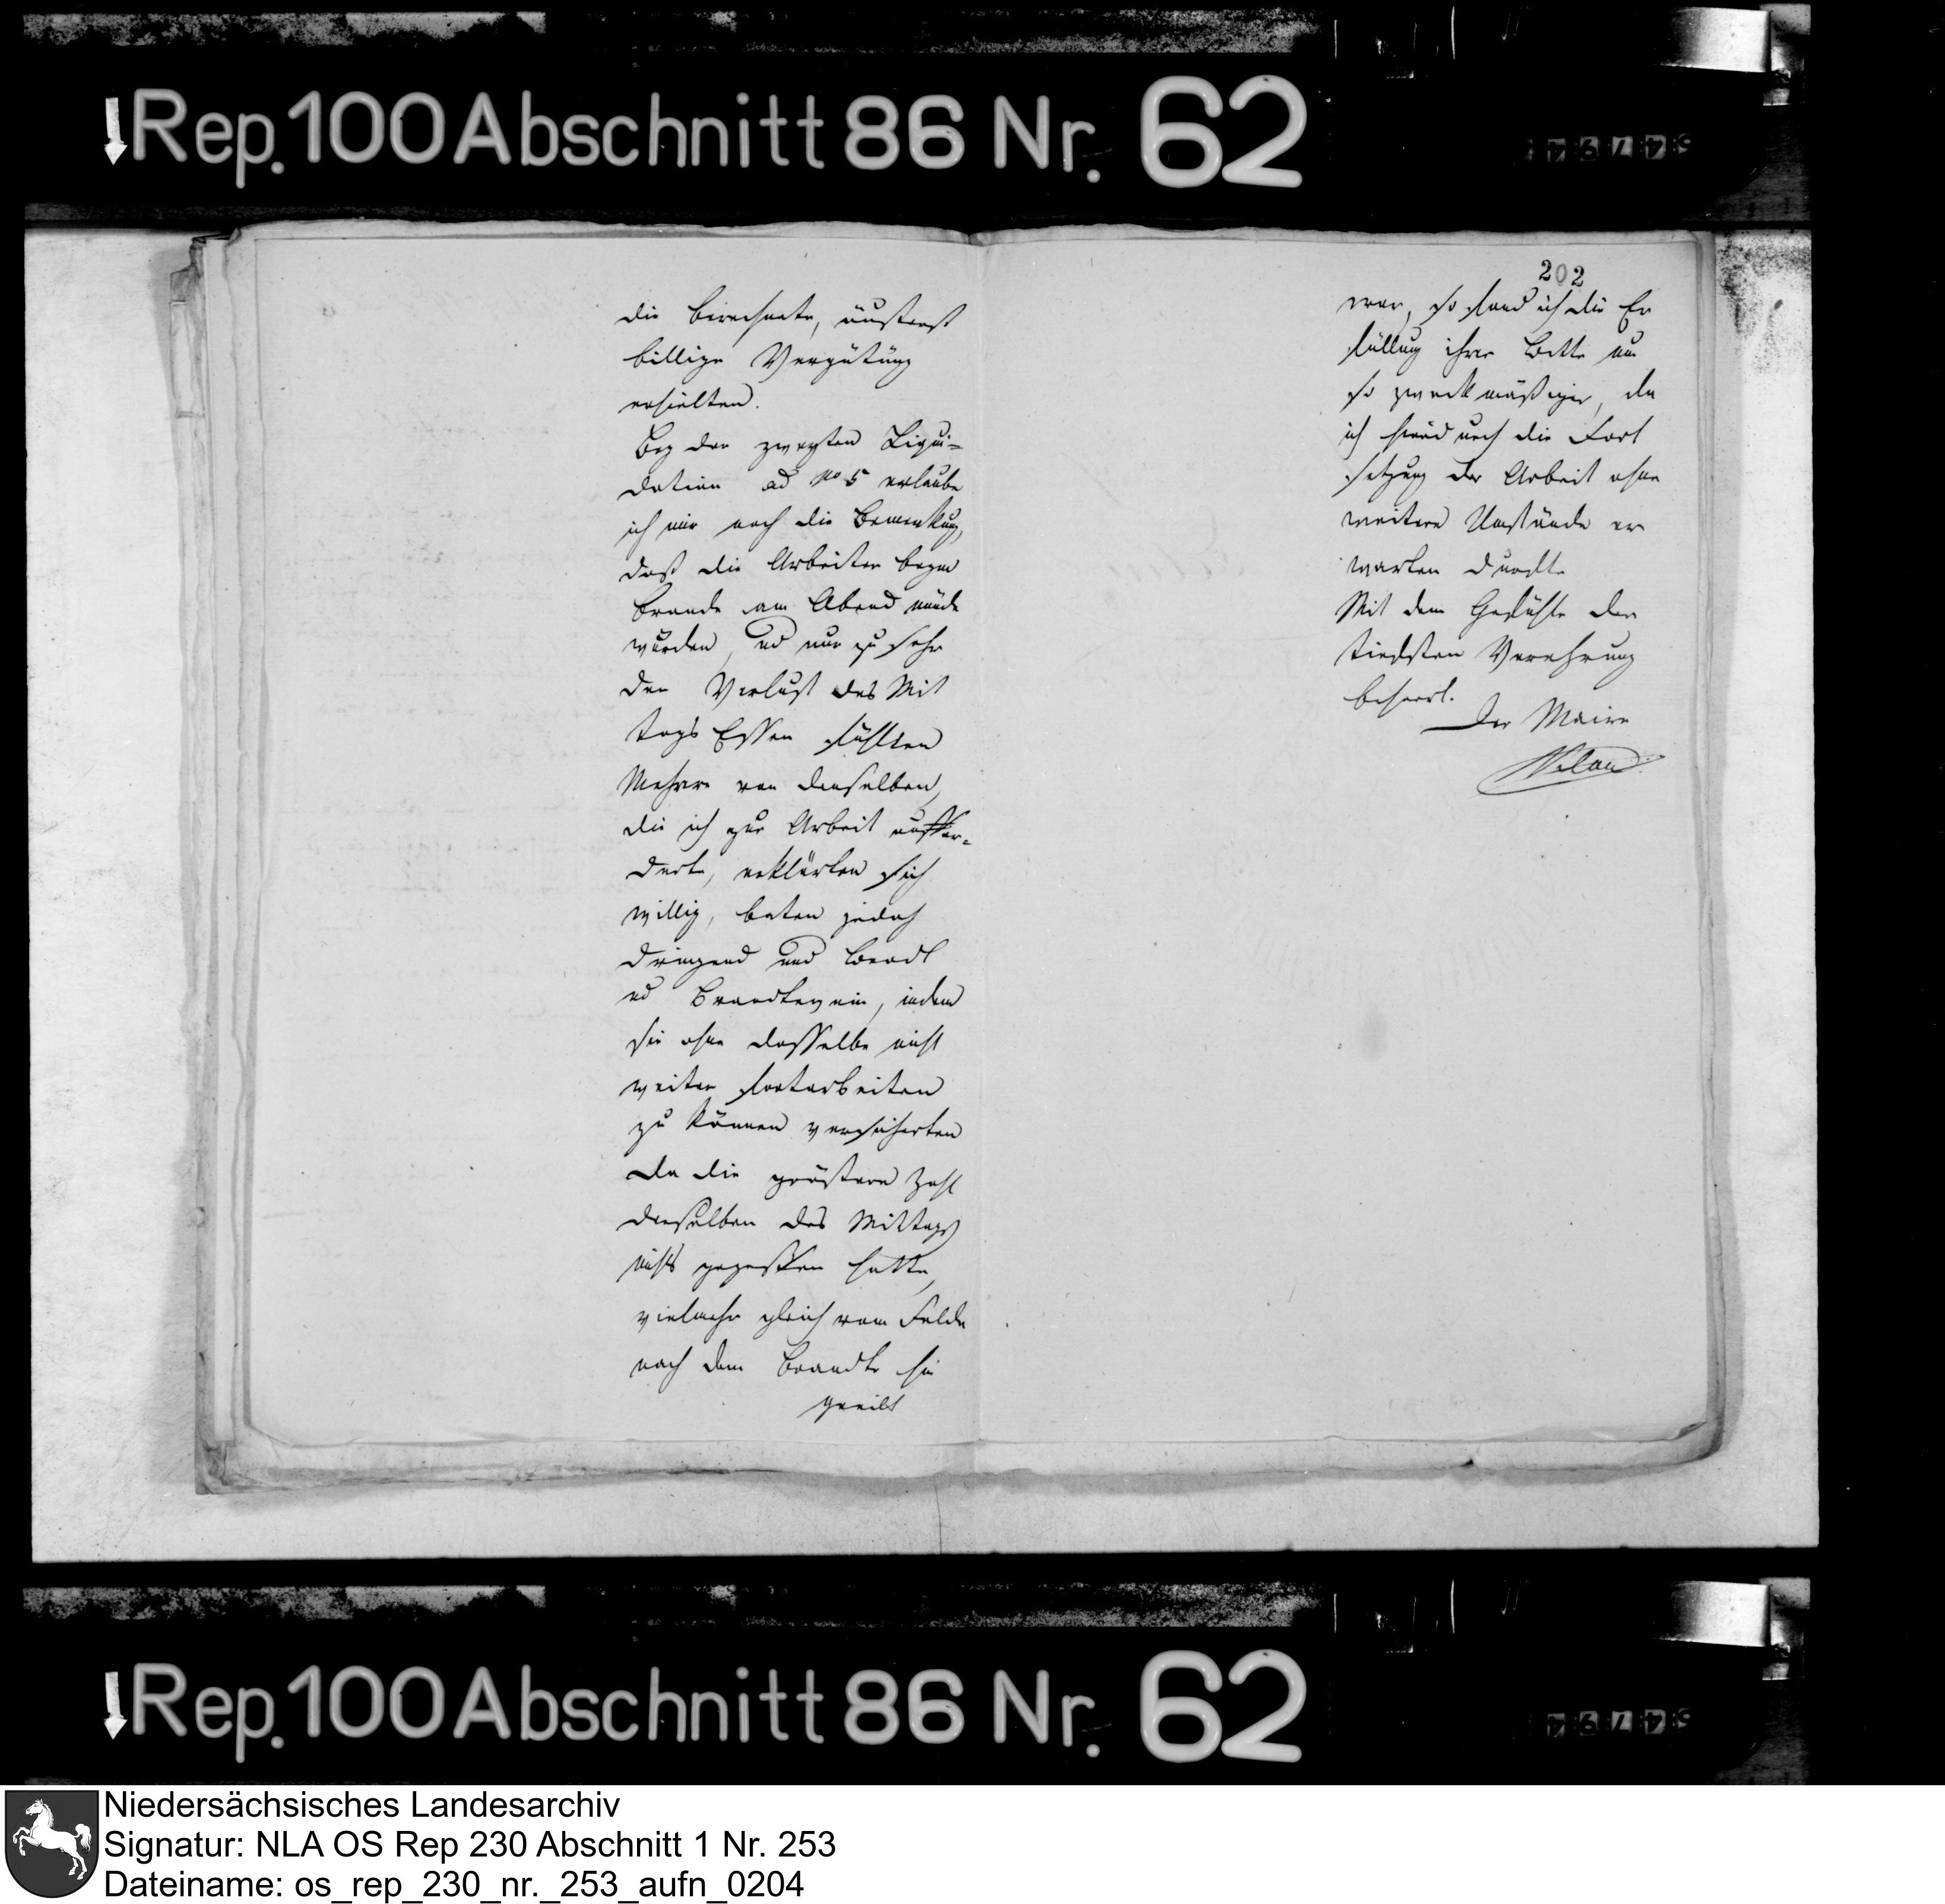 Rep. 100 Abschnitt 86 Nr. 62
die berechnete, äußerst
billige Vergütung
erhielten.
Bey der zweyten Liqui-
dation ad No 5 erlaube
ich mir noch die Bemerkung,
daß die Arbeiter beym
Brande am Abend müde
wurden, und nur zu sehr
den Verlust des Mit
tags Essen fühlten
Mehrere von denselben,
die ich zur Arbeit auffor-
derte, erklärten sich
willig, baten jedoch
dringend um Brodt
und Brandtewein, indem
sie ohne dasselbe nicht
weiter fortarbeiten
zu können versicherten
da die größere Zahl
derselben des Mittags
nichts gegessen hatte,
vielmehr gleich vom Felde
nach dem Brandte hin
geeilt
202
war, so fand ich die Er
füllung ihrer Bitte um
so zweckmäßiger, da
ich hierdurch die Fort
setzung der Arbeit ohne
weitere Umstände er
warten durfte
Mit dem Gefühle der
tiefsten Verehrung
beharrt.
Der Maire
Rep. 100 Abschnitt 86 Nr. 62
Niedersächsisches Landesarchiv
Signatur: NLA OS Rep 230 Abschnitt 1 Nr. 253
Dateiname: os_rep_230_nr._253_aufn_0204